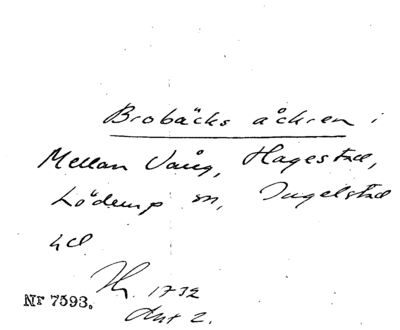 Brobäcks åckren i
Mellan Vång, Hagestad,
Löderup sn, Ingelstad
hd
1732
Akt 2.
Nr 7593.